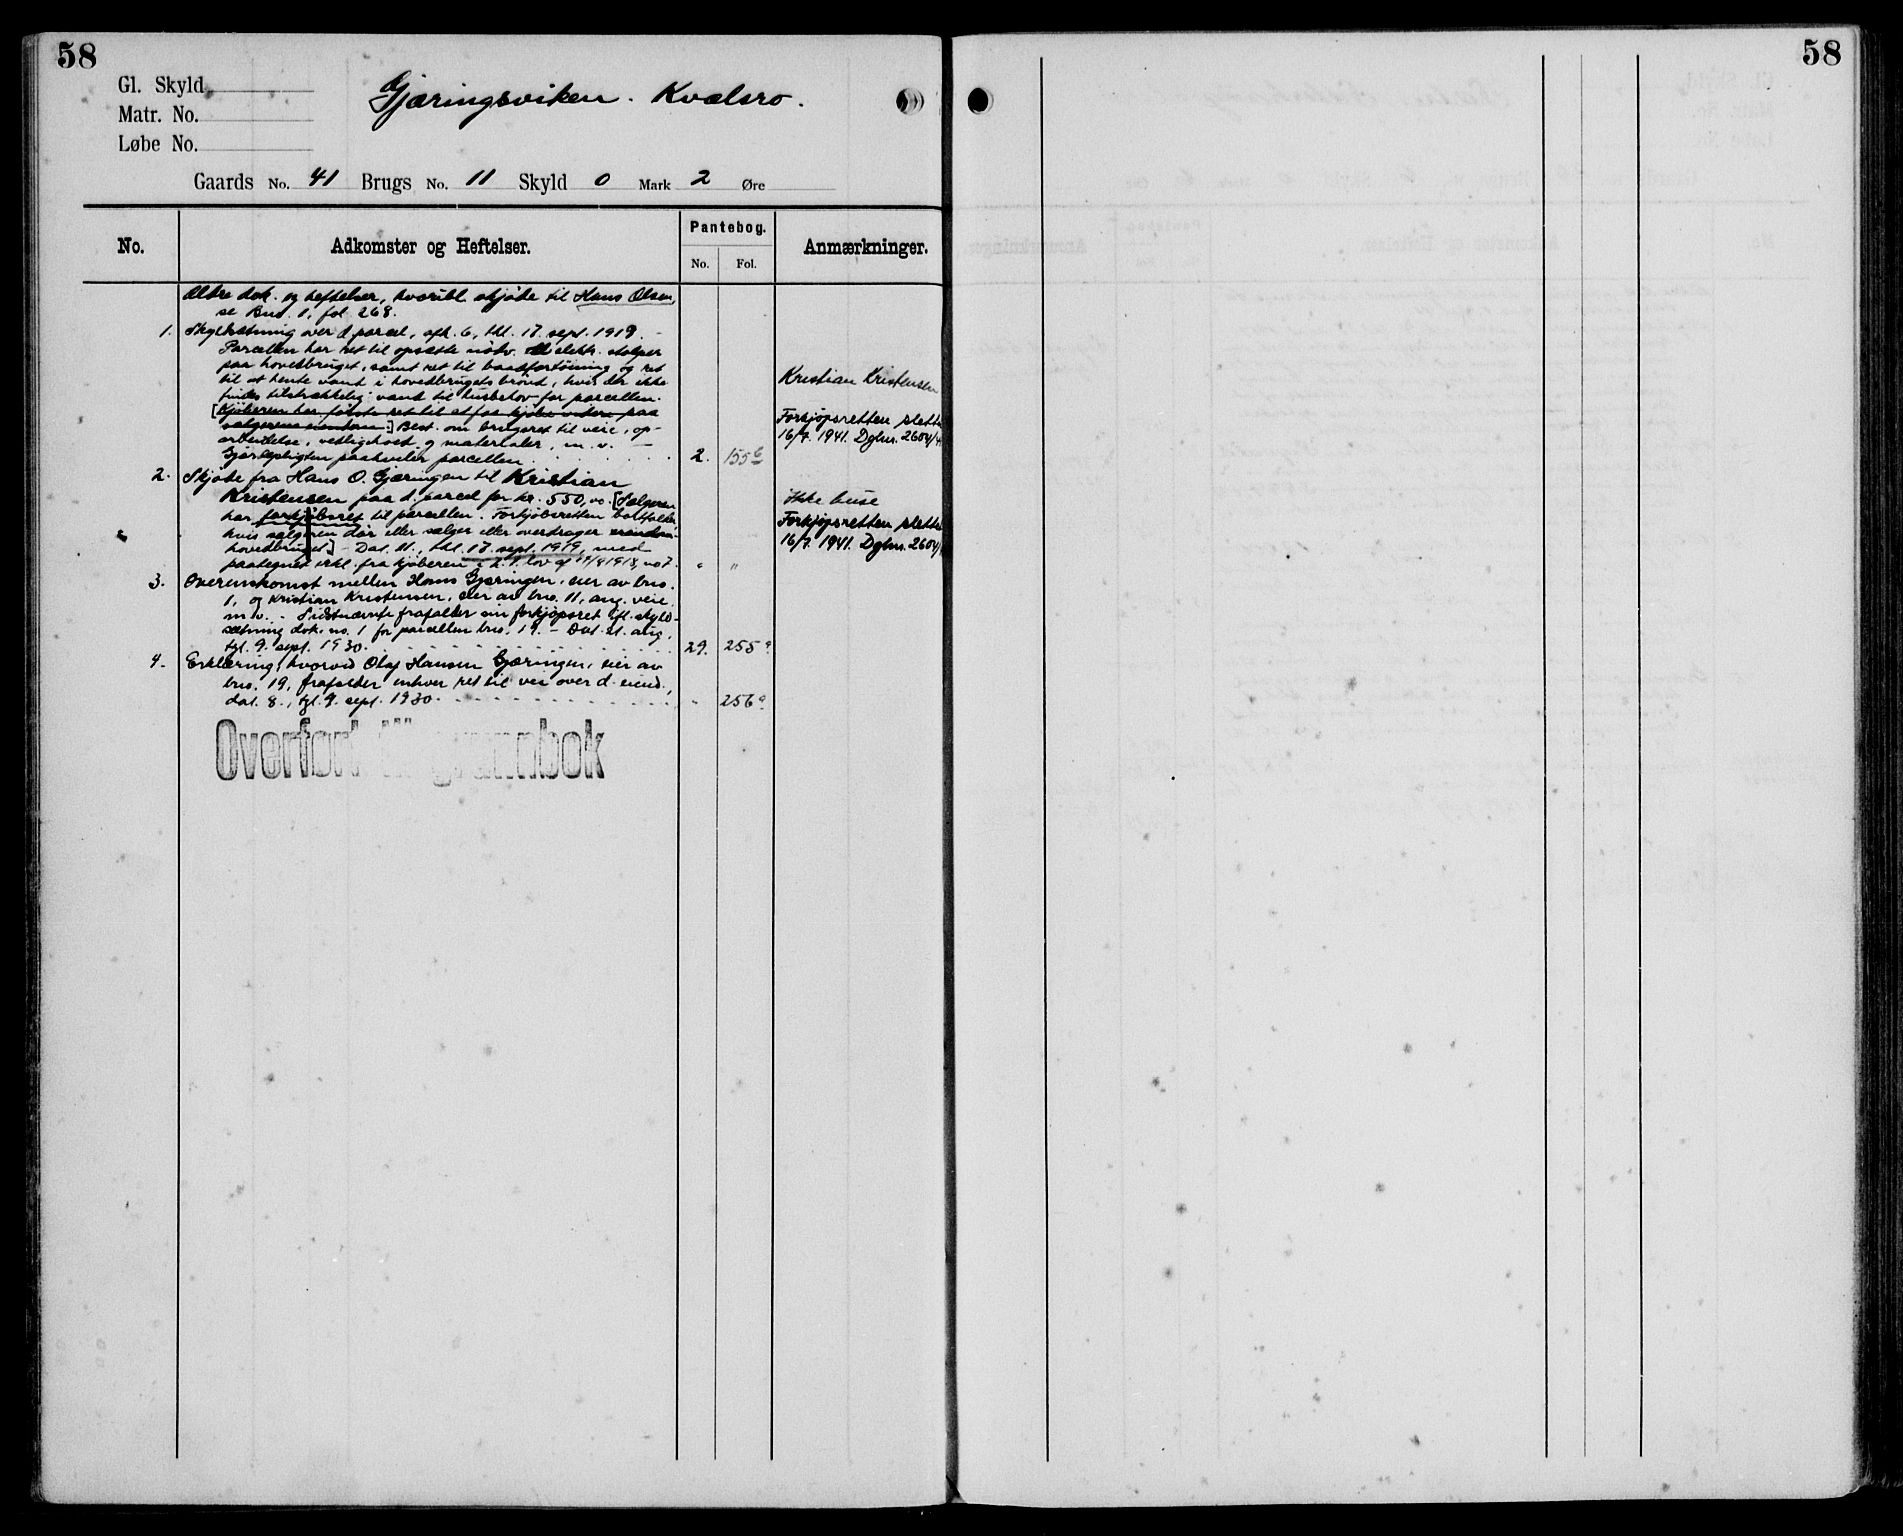 58
58
Gl. Skyld
Gjæringsviken. Kvalsro.
Matr. No.
Løbe No.
Gaards No. 41 Brugs No. 11 Skyld 0 Mark 2 Øre
No. Adkomster og Heftelser. Pantebog. Anmærkninger.
No. Fol.
Ældre dok. og heftelser, hvoribl. skjøde til Hans Olsen,
se Bud. 1, fol. 268.
1. Skyldsætning over d. parcel, afh. 6, thl. 17. sept. 1919. —
Parcellen har ret til opsætte nødv. elektr. stolper
paa hovedbruget, samt ret til baadfortøining og ret
til at hente vand i hovedbrugets brønd, hvis der ikke
findes tilstrækkelig vand til husbehov for parcellen.
[Kjøberen har første ret til at faa kjøbe videre paa
sælgerens eiendom.] Best. om brugsret til veie, op-
arbeidelse, vedligehold og materialer, m. v. —
Gjærdepligten paahviler parcellen. 2. 155b
Kristian Kristensen
Forkjøpsretten slettet
16/7. 1941. Dgbnr. 2604/4
2. Skjøde fra Hans O. Gjæringen til Kristian
Kristensen paa d. parcel for kr. 550,00. [Sælgeren
har forkjøbsret til parcellen. Forkjøbsretten bortfalder,
hvis sælgeren dør eller sælger eller overdrager
hovedbruget.] – Dat. 11., thl. 17. sept. 1919, med
paategnet erkl. fra kjøberen i h. t. lov af 1918, no 7. " "
ikke buse
Forkjøpsretten slettet
16/7. 1941. Dgbnr. 2604/
3. Overenskomst mellem Hans Gjæringen, eier av bno.
1, og Kristian Kristensen, eier av bno. 11, ang. veie
m. v. – Sidstnævnte frafalder sin forkjøpsret ifl. skyld-
sætning dok. no. 1 for parcellen bno. 19. – Dat. 21. aug.,
tgl. 9. sept. 1930. 29. 255
4. Erklæring, hvorved Olaf Hansen Gjæringen, eier av
bno. 19, frafalder enhver ret til vei over d. eiend.,
dat. 8., tgl. 9. sept. 1930. " 256
Overført til grunnbok